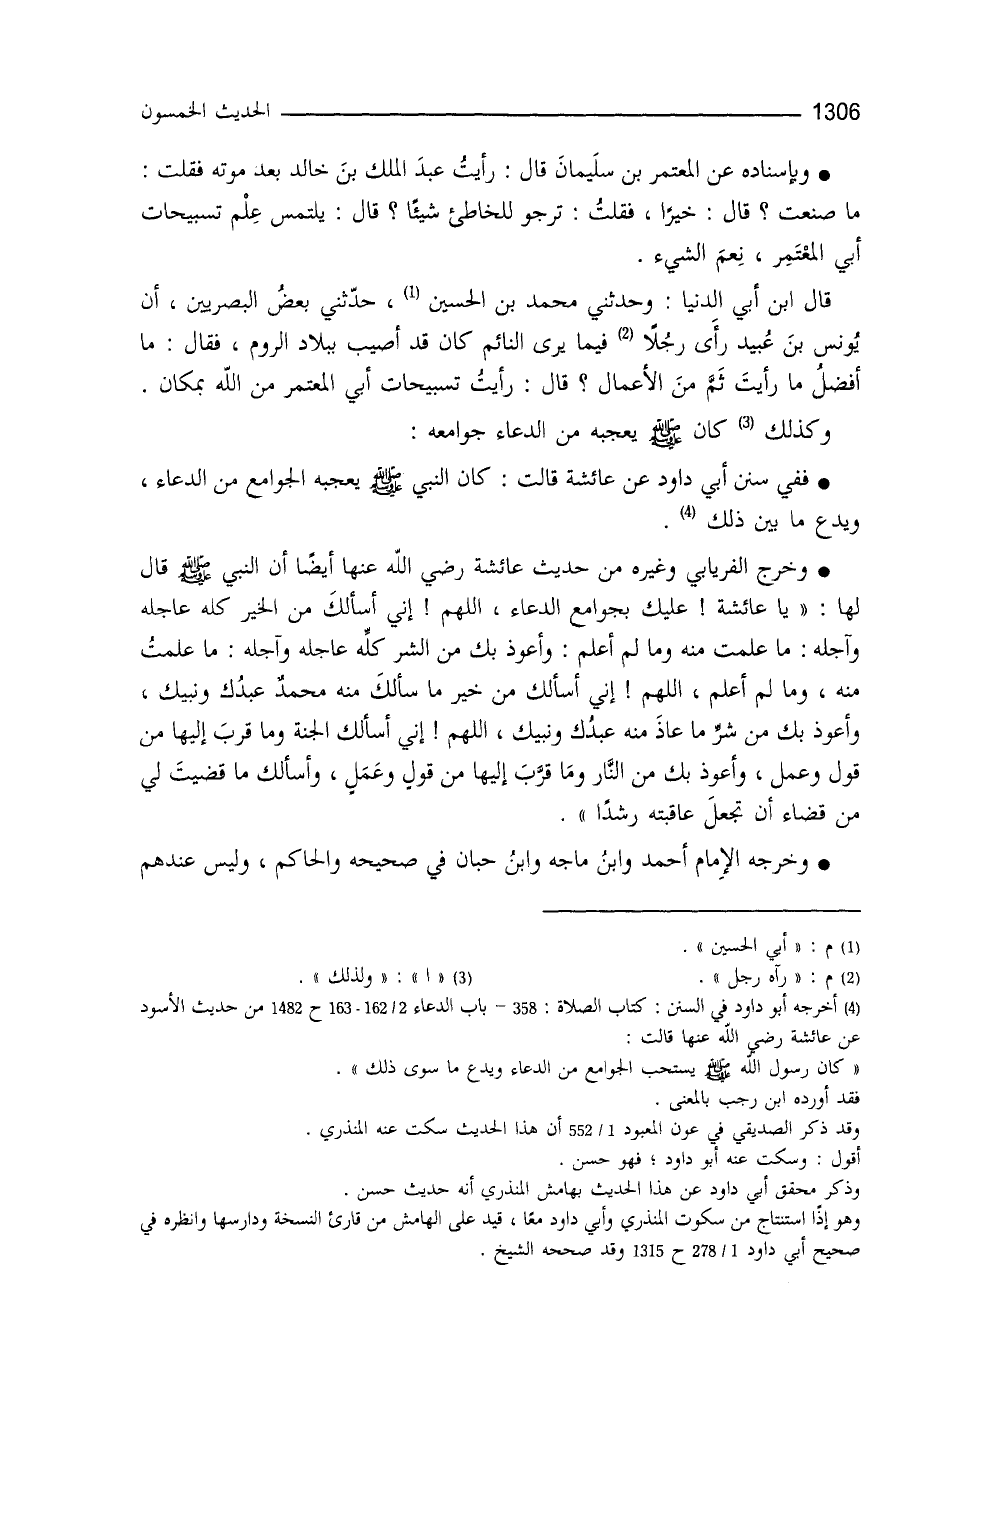 1306 الحديث الخمسون
● وبإسناده عن المعتمر بن سلَيمانَ قال : رأيتُ عبدَ الملك بنَ خالد بعد موته فقلت :
ما صنعت ؟ قال : خيرًا ، فقلتُ : ترجو للخاطئ شيئًا ؟ قال : يلتمس عِلْم تسبيحات
أبي المعْتَمِر ، نِعمَ الشيء .
قال ابن أبي الدنيا : وحدثني محمد بن الحسين (1) ، حدّثني بعضُ البصريين ، أن
يُونس بنَ عُبيد رأَى رجُلًا (2) فيما يرى النائم كان قد أصيب ببلاد الروم ، فقال : ما
أفضلُ ما رأيتَ ثَمَّ منَ الأعمال ؟ قال : رأيتُ تسبيحات أبي المعتمر من اللّه بمكان .
وكذلك (3) كان ﷺ يعجبه من الدعاء جوامعه :
● ففي سنن أبي داود عن عائشة قالت : كان النبي ﷺ يعجبه الجوامع من الدعاء ،
ويدع ما بين ذلك (4) .
● وخرج الفريابي وغيره من حديث عائشة رضي اللّه عنها أيضًا أن النبي ﷺ قال
لها : « يا عائشة ! عليك بجوامع الدعاء ، اللهم ! إني أسألكَ من الخير كله عاجله
وآجله : ما علمت منه وما لم أعلم : وأعوذ بك من الشر كلِّه عاجله وآجله : ما علمتُ
منه ، وما لم أعلم ، اللهم ! إني أسألك من خير ما سألكَ منه محمدٌ عبدُك ونبيك ،
وأعوذ بك من شرِّ ما عاذَ منه عبدُك ونبيك ، اللهم ! إني أسألك الجنة وما قربَ إليها من
قول وعمل ، وأعوذ بك من النَّار ومَا قرَّبَ إليها من قولٍ وعَمَلٍ ، وأسألك ما قضيتَ لي
من قضاء أن تجعلَ عاقبته رشدًا » .
● وخرجه الإمام أحمد وابنُ ماجه وابنُ حبان في صحيحه والحاكم ، وليس عندهم
(1) م : « أبي الحسين » .
(2) م : « رآه رجل » . (3) « ا » : « ولذلك » .
(4) أخرجه أبو داود في السنن : كتاب الصلاة : 358 – باب الدعاء 2/ 162 - 163 ح 1482 من حديث الأسود
عن عائشة رضي اللّه عنها قالت :
« كان رسول اللّه ﷺ يستحب الجوامع من الدعاء ويدع ما سوى ذلك » .
فقد أورده ابن رجب بالمعنى .
وقد ذكر الصديقي في عون المعبود 1/ 552 أن هذا الحديث سكت عنه المنذري .
أقول : وسكت عنه أبو داود ؛ فهو حسن .
وذكر محقق أبي داود عن هذا الحديث بهامش المنذري أنه حديث حسن .
وهو إذًا استنتاج من سكوت المنذري وأبي داود معًا ، قيد على الهامش من قارئ النسخة ودارسها وانظره في
صحيح أبي داود 1/ 278 ح 1315 وقد صححه الشيخ .